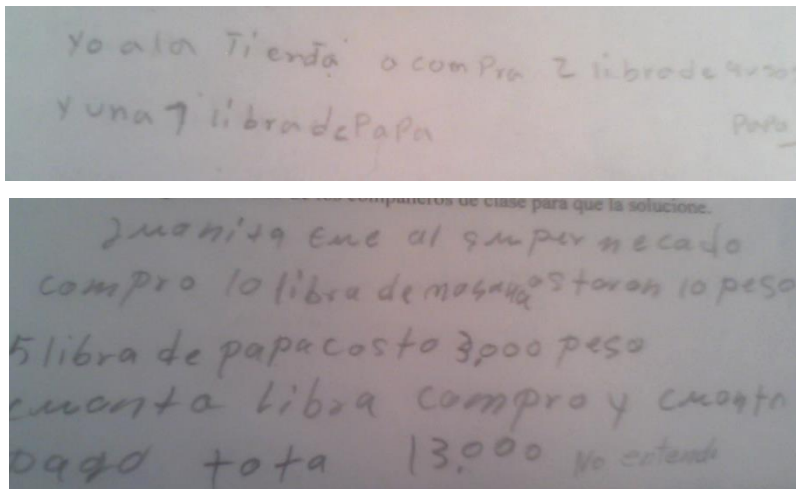 yo a la Tienda a compra 2 libra de
y una 1 libra de PaPa
compañeros de clase para que la solucione.
Juanita Fue al supermecado
compro 10 libra de costaron 10 peso
5 libra de papa costo 3,000 peso
cuanta Libra compro y cuanto
pago tota 13.000 No entendi